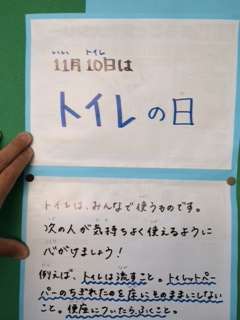 いい トイレ
11月10日は
トイレの日
トイレは、みんなで使うものです。
次の人が気持ちよく使えるように
心がけましょう!
例えば、トイレは流すこと。トイレットペー
パーのちぎれたのを床にそのままにしない
こと。便座についたらふくこと。